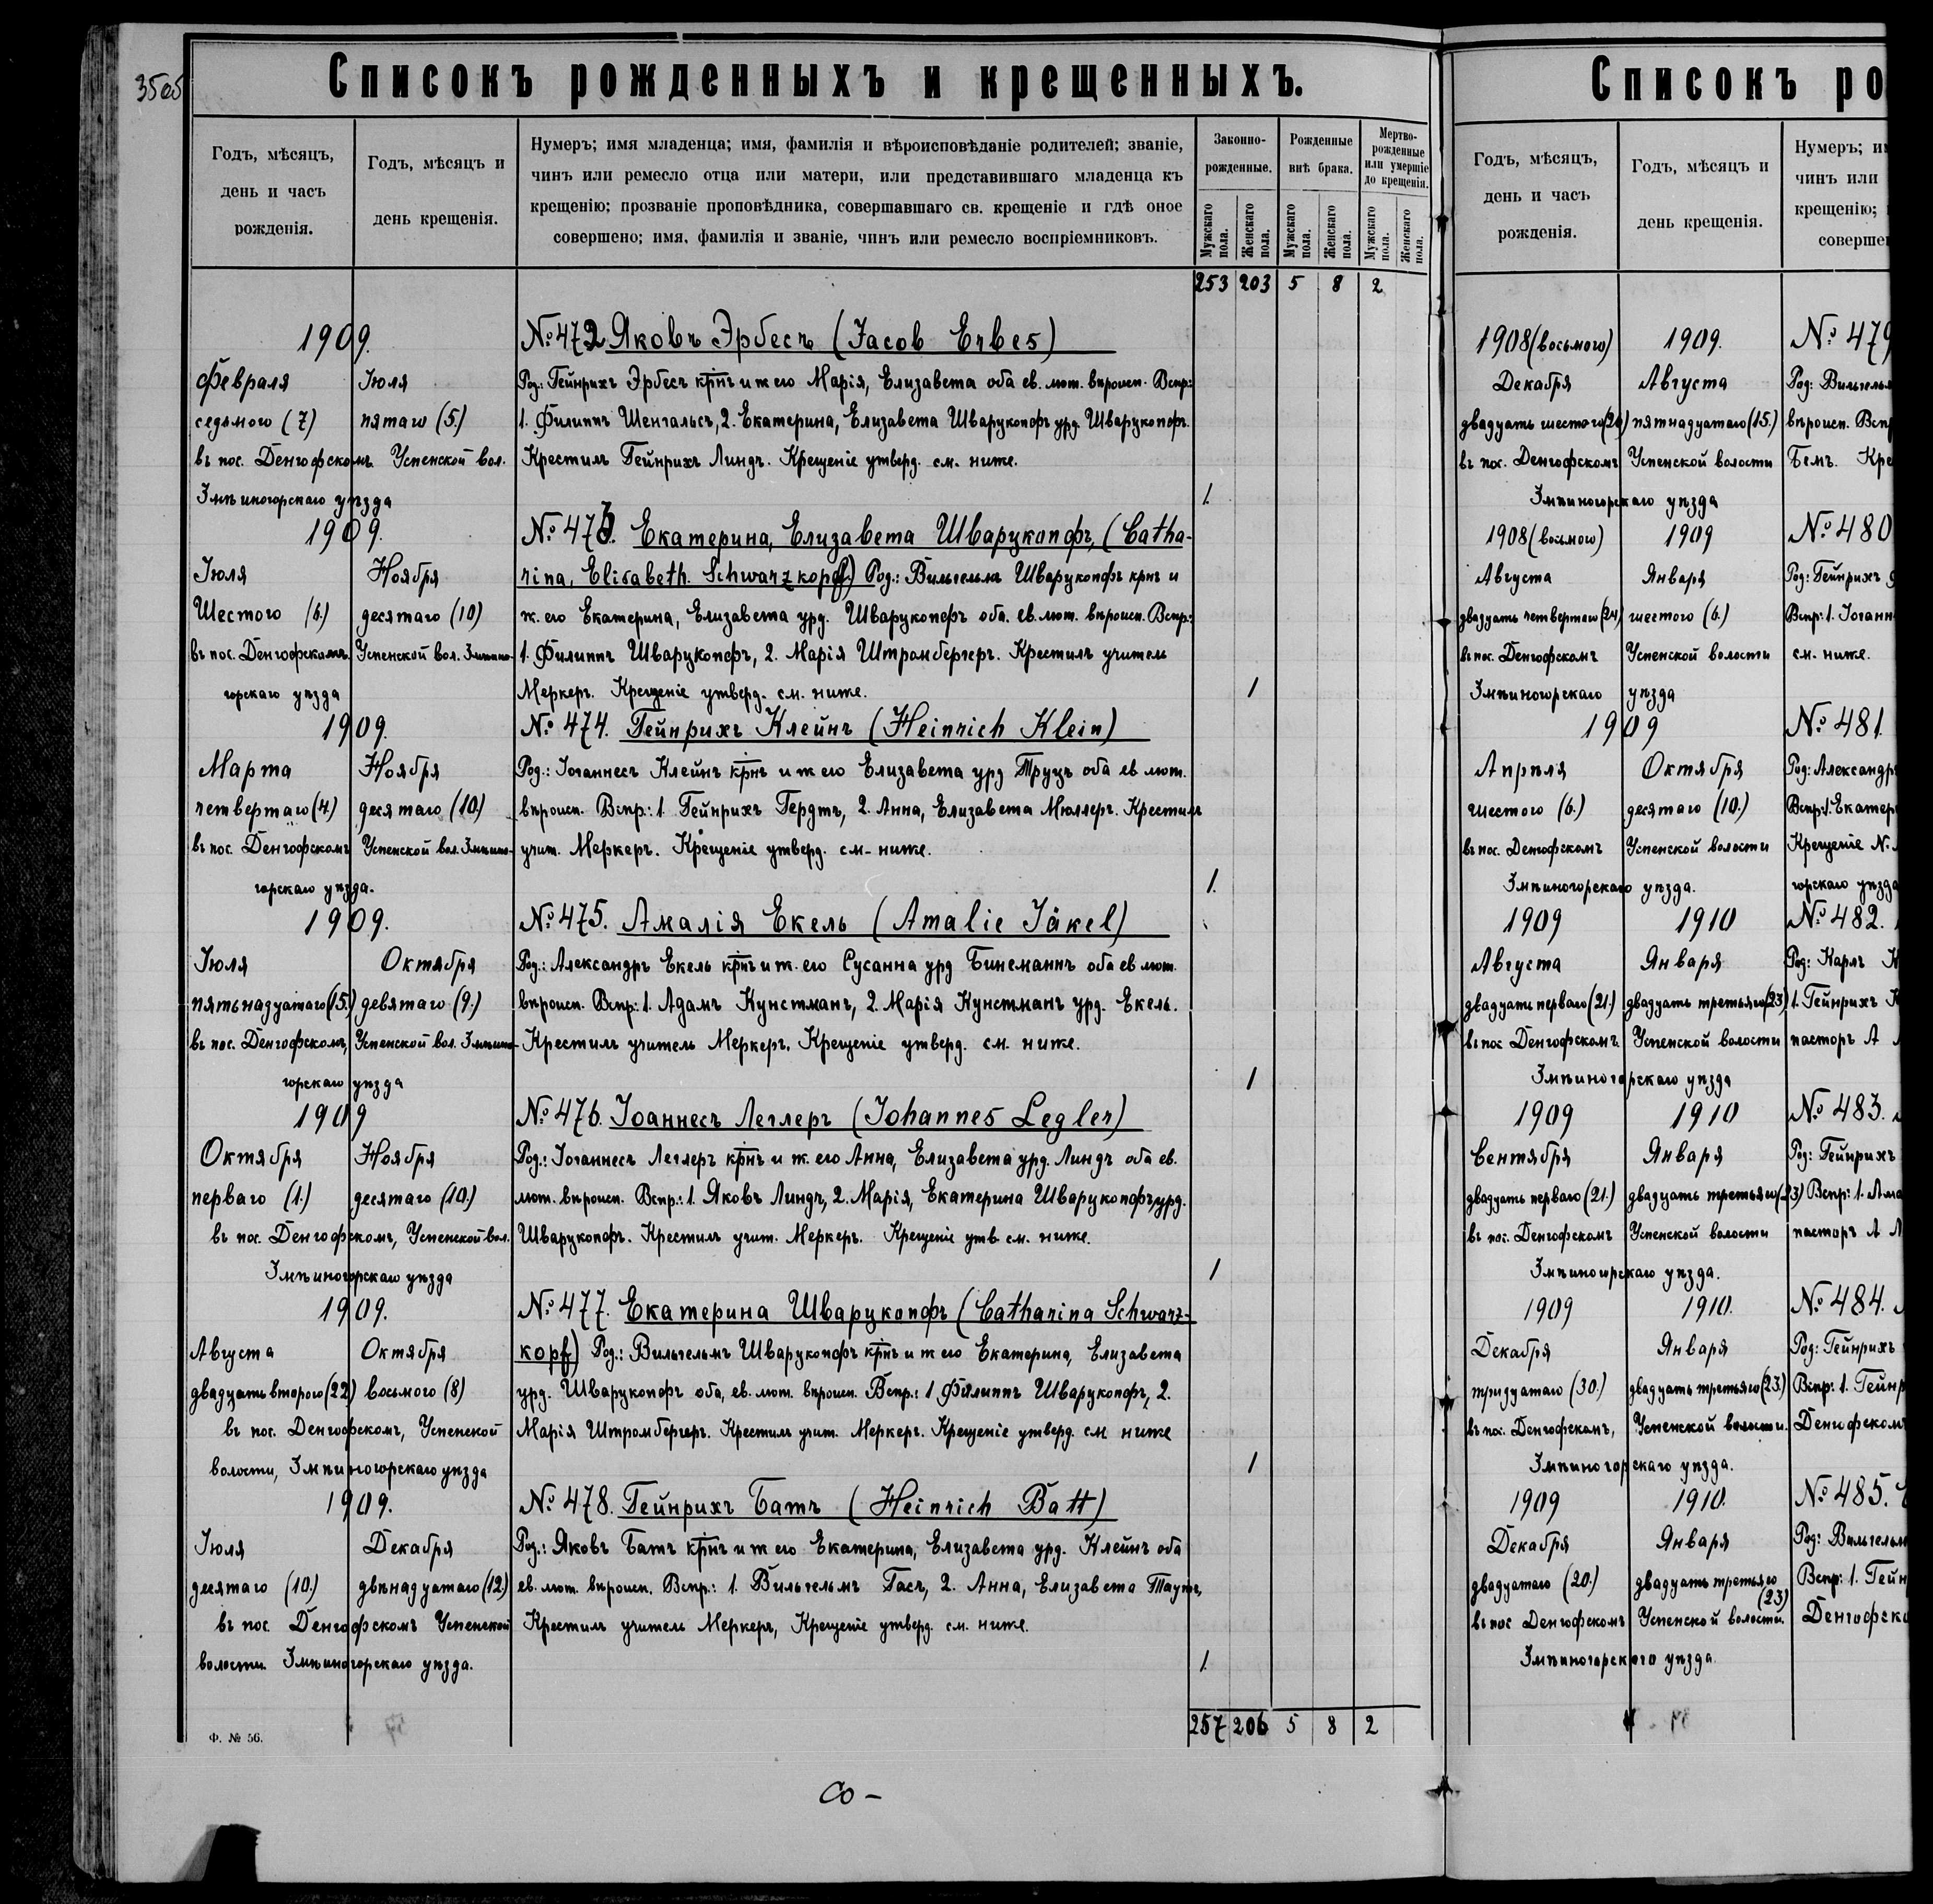 35об
Списокъ рожденныхъ и крещенныхъ.
Годъ, мѣсяцъ,
день и часъ
рожденія.
Годъ, мѣсяцъ и
день крещенія.
Нумеръ; имя младенца; имя, фамилія и вѣроисповѣданіе родителей; званіе,
чинъ или ремесло отца или матери, или представившаго младенца къ
крещенію; прозваніе проповѣдника, совершавшаго св. крещеніе и гдѣ оное
совершено; имя, фамилія и званіе, чинъ или ремесло воспріемниковъ.
Законно-
рожденные.
Рожденные
внѣ брака.
Мертво-
рожденные
или умершіе
до крещенія.
Мужскаго пола.
Женскаго пола.
Мужскаго пола.
Женскаго пола.
Мужскаго пола.
Женскаго пола.
253 203 5 8 2
1909.
Февраля Іюля
седьмого (7) пятаго (5.)
въ пос. Денгофскомъ Успенской вол.
Змѣиногорскаго уѣзда
№ 472 Яковъ Эрбесъ (Jacob Erbes)
Род.: Гейнрихъ Эрбесъ крнъ и ж его Марія, Елизавета оба ев. лют. вѣроисп. Вспр:
1. Филиппъ Шенгальсъ, 2. Екатерина, Елизавета Шварцкопфъ урд. Шварцкопфъ.
Крестилъ Гейнрихъ Линдъ. Крещеніе утверд. см. ниже.
1.
1909.
Іюля Ноября
Шестого (6.) десятаго (10)
въ пос. Денгофскомъ. Успенской вол. Змѣино-
горскаго уѣзда
№ 473. Екатерина, Елизавета Шварцкопфъ, (Catha-
rina, Elisabeth. Schwarzkopf.) Род.: Вильгельмъ Шварцкопфъ крнъ и
ж. его Екатерина, Елизавета урд. Шварцкопфъ оба. ев. лют. вѣроисп. Вспр:
1. Филиппъ Шварцкопфъ, 2. Марія Штромбергеръ. Крестилъ учитель
Меркеръ. Крещеніе утверд. см. ниже.
1
1909.
Марта Ноября
четвертаго (4.) десятаго (10.)
въ пос. Денгофскомъ Успенской вол. Змѣино-
горскаго уѣзда.
№ 474. Гейнрихъ Клейнъ (Heinrich Klein)
Род.: Іоганнесъ Клейнъ крнъ и ж его Елизавета урд Труцъ оба ев лют.
вѣроисп. Вспр.: 1. Гейнрихъ Гердтъ, 2. Анна, Елизавета Мюллеръ. Крестилъ
учит. Меркеръ. Крещеніе утверд. см. ниже.
1.
1909.
Іюля Октября
пятьнадцатаго (15.) девятаго (9.)
въ пос. Денгофскомъ, Успенской вол. Змѣино-
горскаго уѣзда
№ 475. Амалія Екель (Amalie Jäkel)
Род.: Александръ Екель крнъ и ж. его Сусанна урд Бинеманнъ оба ев лют.
вѣроисп. Вспр: 1. Адамъ Кунстманъ, 2. Марія Кунстманъ урд. Екель.
Крестилъ учитель Меркеръ. Крещеніе утверд. см. ниже.
1
1909
Октября Ноября
перваго (1.) десятаго (10.)
въ пос. Денгофскомъ, Успенской вол.
Змѣиногорскаго уѣзда
№ 476. Іоаннесъ Леглеръ (Johannes Legler)
Род.: Іоганнесъ Леглеръ крнъ и ж. его Анна, Елизавета урд. Линдъ оба ев.
лют. вѣроисп. Вспр.: 1. Яковъ Линдъ, 2. Марія, Екатерина Шварцкопфъ, урд.
Шварцкопфъ. Крестилъ учит. Меркеръ. Крещеніе утв. см. ниже.
1
1909.
Августа Октября
двадцать второго (22) восьмого (8)
въ пос. Денгофскомъ, Успенской
волости, Змѣиногорскаго уѣзда
№ 477. Екатерина Шварцкопфъ (Catharina Schwarz-
kopf) Род.: Вильгельмъ Шварцкопфъ крнъ и ж его Екатерина, Елизавета
урд. Шварцкопфъ оба, ев. лют. вѣроисп. Вспр.: 1. Филиппъ Шварцкопфъ, 2.
Марія Штромбергеръ. Крестилъ учит. Меркеръ. Крещеніе утверд. см ниже
1
1909.
Іюля Декабря
десятаго (10.) двѣнадцатаго (12.)
въ пос. Денгофскомъ Успенской
волости. Змѣиногорскаго уѣзда.
№ 478. Гейнрихъ Батъ (Heinrich Batt)
Род.: Яковъ Батъ крнъ и ж его Екатерина, Елизавета урд. Клейнъ оба
ев. лют. вѣроисп. Вспр.: 1. Вильгельмъ Гасъ, 2. Анна, Елизавета Таутъ,
Крестилъ учитель Меркеръ, Крещеніе утверд. см. ниже.
1.
257 206 5 8 2
Ф. № 56.
Списокъ ро
Годъ, мѣсяцъ,
день и часъ
рожденія.
Годъ, мѣсяцъ и
день крещенія.
Нумеръ; и
чинъ или
крещенію;
соверше
1908 (восьмого) 1909. № 479
Декабря Августа Род: Вильгель
двадцать шестого (26) пятнадцатаго (15.) вѣроисп. Всп
въ пос. Денгофскомъ Успенской волости Бемъ. Кре
Змѣиногорскаго уѣзда
1908 (восьмого) 1909 № 480
Августа Января Род: Гейнрихъ
двадцать четвертаго (24) шестого (6.) Вспр: 1. Іоганн
въ пос. Денгофскомъ Успенской волости см. ниже.
Змѣиногорскаго уѣзда
1909 № 481.
Апрѣля Октября Род: Александр
шестого (6.) десятаго (10.) Вспр: 1. Екатер
въ пос. Денгофскомъ Успенской волости Крещеніе №
Змѣиногорскаго уѣзда. горскаго уѣзда
1909 1910 № 482.
Августа Января Род: Карлъ К
двадцать перваго (21.) двадцать третьяго (23) 1. Гейнрихъ К
въ пос Денгофскомъ. Успенской волости пасторъ А
Змѣиногорскаго уѣзда
1909 1910 № 483.
Сентября Января Род: Гейнрихъ
двадцать перваго (21.) двадцать третьяго (23) Вспр: 1. Ама
въ пос. Денгофскомъ Успенской волости пасторъ А
Змѣиногорскаго уѣзда.
1909 1910. № 484.
Декабря Января Род: Гейнрихъ
тридцатаго (30.) двадцать третьяго (23.) Вспр: 1. Гейнр
въ пос. Денгофскомъ, Успенской волости. Денгофском
Змѣиногорскаго уѣзда.
1909 1910. № 485.
Декабря Января Род: Вильгельм
двадцатаго (20.) двадцать третьяго (23) Вспр: 1. Гейн
въ пос Денгофскомъ Успенской волости. Денгофско
Змѣиногорскаго уѣзда.